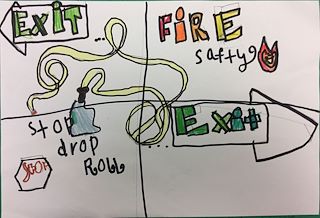 EXIT
FiRE
safty
stop
drop
Roll
Exit
STOP